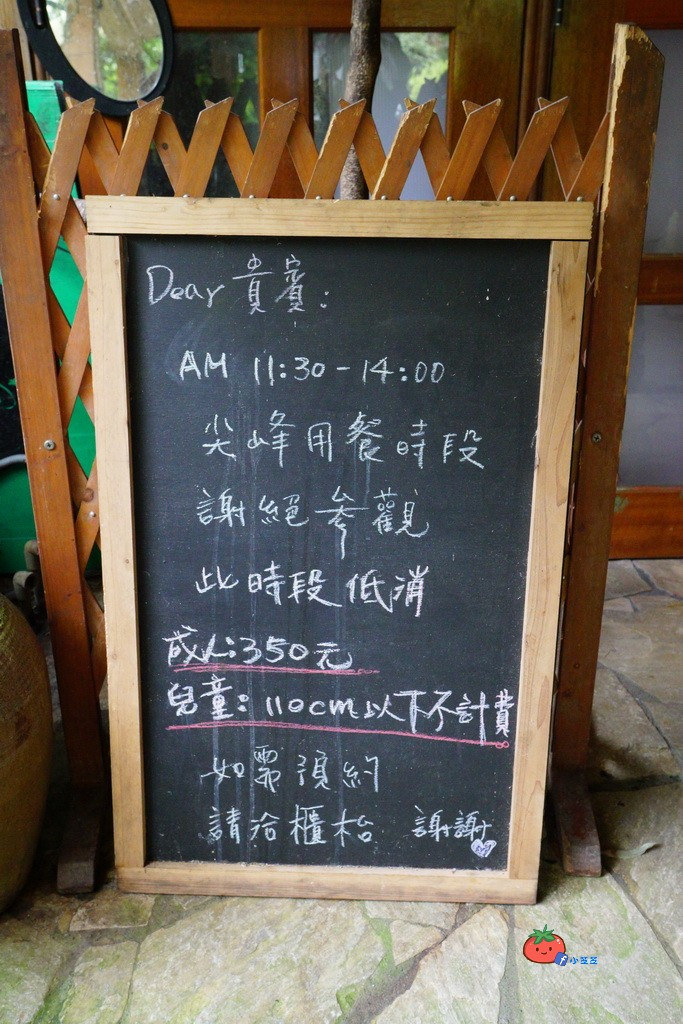 Dear 貴賓:
AM 11:30-14:00
尖峰用餐時段
謝絕參觀
此時段低消
成人:350元
兒童:110cm以下不計費
如需預約
請洽櫃枱 謝謝
小荳荳